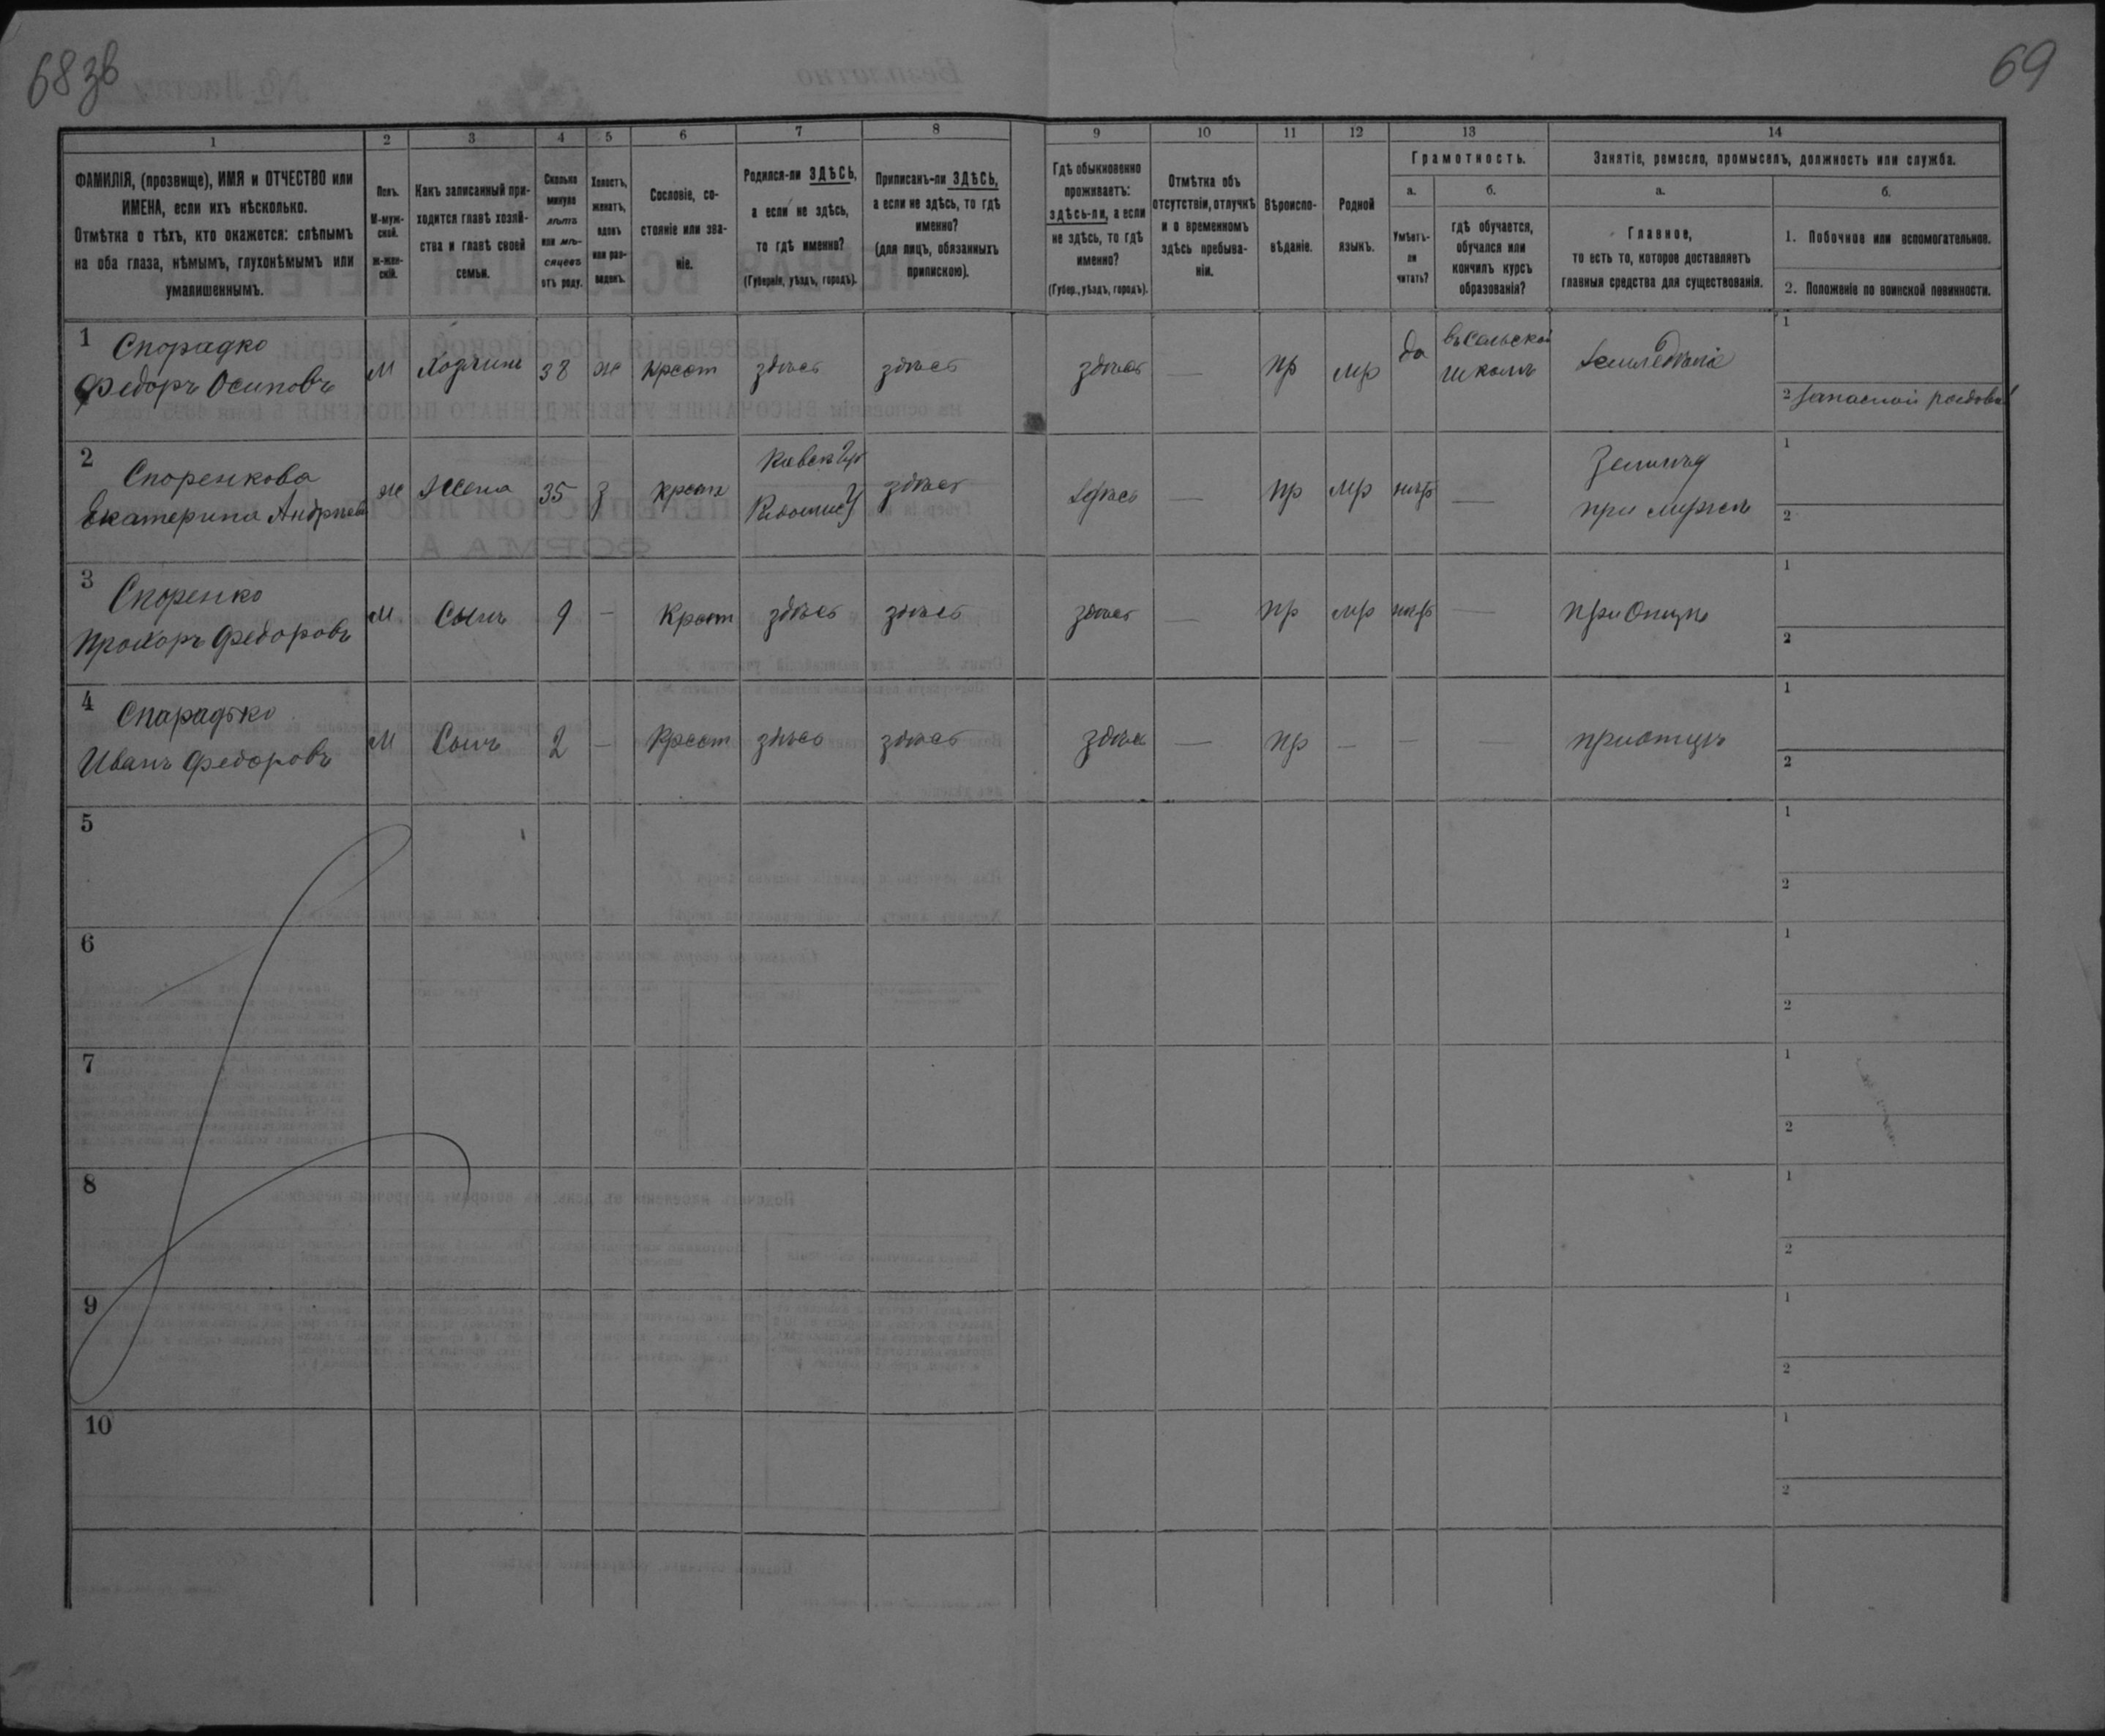 68 зв
69
1
2
3
4
5
6
7
8
9
10
11
12
13
14
ФАМИЛІЯ, (прозвище), ИМЯ и ОТЧЕСТВО или
ИМЕНА, если ихъ нѣсколько.
Отмѣтка о тѣхъ, кто окажется: слѣпымъ
на оба глаза, нѣмымъ, глухонѣмымъ или
умалишеннымъ.
Полъ.
М-муж-
ской.
ж-жен-
скій.
Какъ записанный при-
ходится главѣ хозяй-
ства и главѣ своей
семьи.
Сколько
минуло
лѣтъ
или мѣ-
сяцевъ
отъ роду.
Холостъ,
женатъ,
вдовъ
или раз-
веденъ.
Сословіе, со-
стояніе или зва-
ніе.
Родился-ли ЗДѢСЬ,
а если не здѣсь,
то гдѣ именно?
(Губернія, уѣздъ, городъ).
Приписанъ-ли ЗДѢСЬ,
а если не здѣсь, то гдѣ
именно?
(для лицъ, обязанныхъ
припискою).
Гдѣ обыкновенно
проживаетъ:
здѣсь-ли, а если
не здѣсь, то гдѣ
именно?
(Губер., уѣздъ, городъ).
Отмѣтка объ
отсутствіи, отлучкѣ
и о временномъ
здѣсь пребыва-
ніи.
Вѣроиспо-
вѣданіе.
Родной
языкъ.
Грамотность.
а.
Умѣетъ-
ли
читать?
б.
гдѣ обучается,
обучался или
кончилъ курсъ
образованія?
Занятіе, ремесло, промыселъ, должность или служба.
а.
Главное,
то есть то, которое доставляетъ
главныя средства для существованія.
б.
1. Побочное или вспомогательное.
2. Положеніе по воинской повинности.
1 Спорадко
Федоръ Осиповъ
М Хозяинъ 38 ж Крест здѣсь здѣсь здѣсь — пр мр да въ Сельской
школѣ
Земледѣліе
1
2 Запасной рядовой
2 Споренкова
Екатерина Андрѣева
ж Жена 35 з Крест Киевск Губ
здѣсь здѣсь — пр мр нѣтъ —
при мужѣ
1
2
3 Споренко
Прокоръ Федоровъ
М Сынъ 9 — Крест здѣсь здѣсь здѣсь — пр мр нѣтъ — При Отцѣ
1
2
4 Спарадько
Иванъ Федоровъ
М Сынъ 2 — Крест здѣсь здѣсь здѣсь — пр — — — при отцѣ
1
2
5
1
2
6
1
2
7
1
2
8
1
2
9
1
2
10
1
2